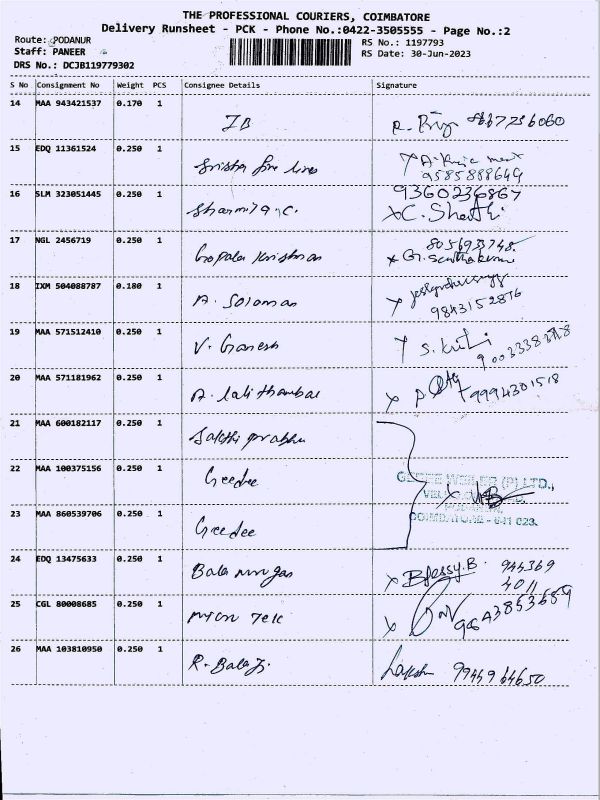 THE PROFESSIONAL COURIERS, COIMBATORE
Delivery Runsheet - PCK - Phone No.:0422-3505555 - Page No.:2
Route: PODANUR
RS No.: 1197793
Staff: PANEER
RS Date: 30-Jun-2023
DRS No.: DCJB119779302
S No Consignment No Weight PCS Consignee Details Signature
14 MAA 943421537 0.170 1
IB R.
15 EDQ 11361524 0.250 1
fire line
9585888649
16 SLM 323051445 0.250 1 9360236867
Sharmila C. XC.
17 NGL 2456719 0.250 1 8056933748
Gopala Krishnan x G.
18 IXM 504088787 0.180 1
A. Solomon x 9843152876
19 MAA 571512410 0.250 1
V. Ganesh S.
20 MAA 571181962 0.250 1
A. Lalithambal x 9994301518
21 MAA 600182117 0.250 1
Sakthi prabhu
22 MAA 100375156 0.250 1
Geedee (P) LTD.,
23 MAA 860539706 0.250 1
COIMBATORE - 641 023.
Geedee
24 EDQ 13475633 0.250 1
Bala murugan x B Jessy.B. 944369
4011
25 CGL 80008685 0.250 1
Micro Tek x 9843853689
26 MAA 103810950 0.250 1
R. Balaji 9944964650